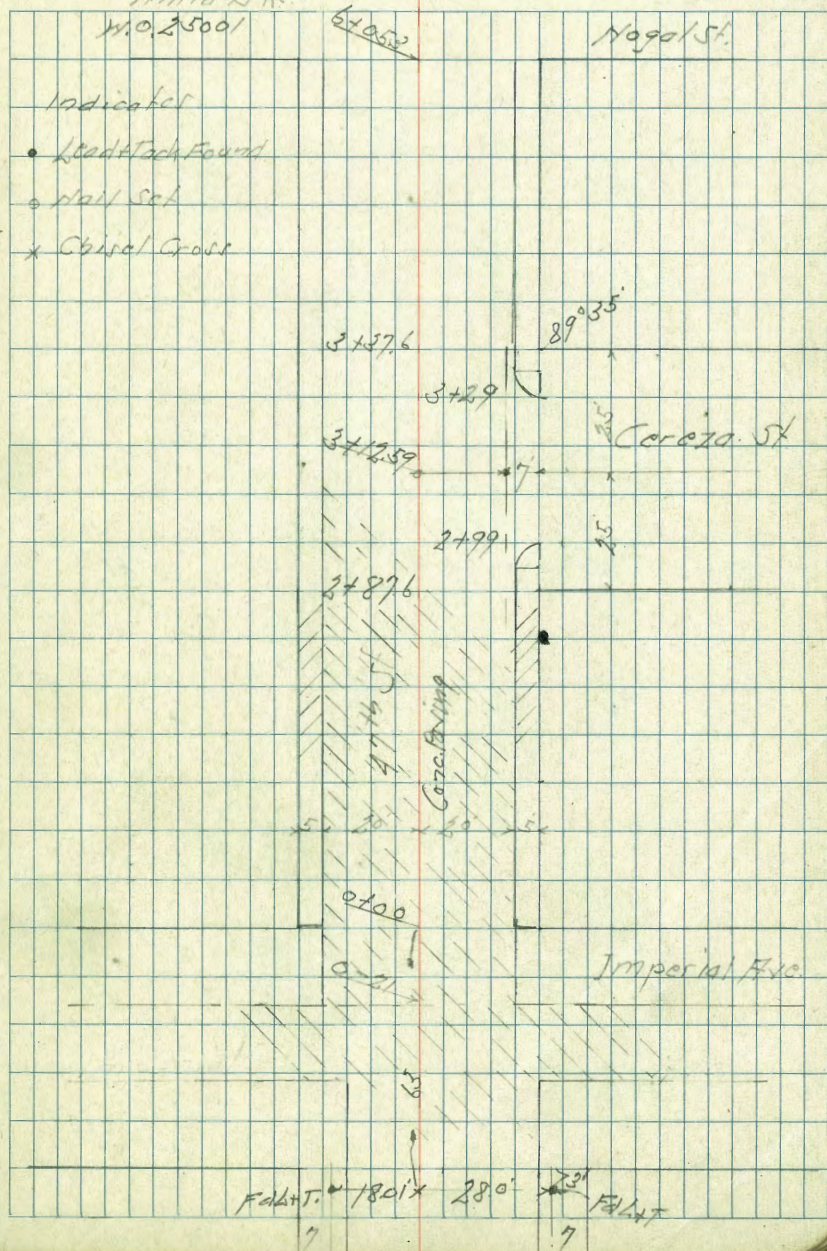 W.O. 25001
6+053
Nogal St.
Indicates
• Lead+Tack Found
o Nail Set
x Chisel Cross
89°35'
3+37.6
3+29
25'
Cereza St
3+12.59
7'
2+99
25
2+87.6
47th St
Conc. Paving
5 20' 20' 5
0+00
Imperial Ave.
0-21
65
Fd L+T. 18.01' x 28.0' 23' Fd L+T
7 7